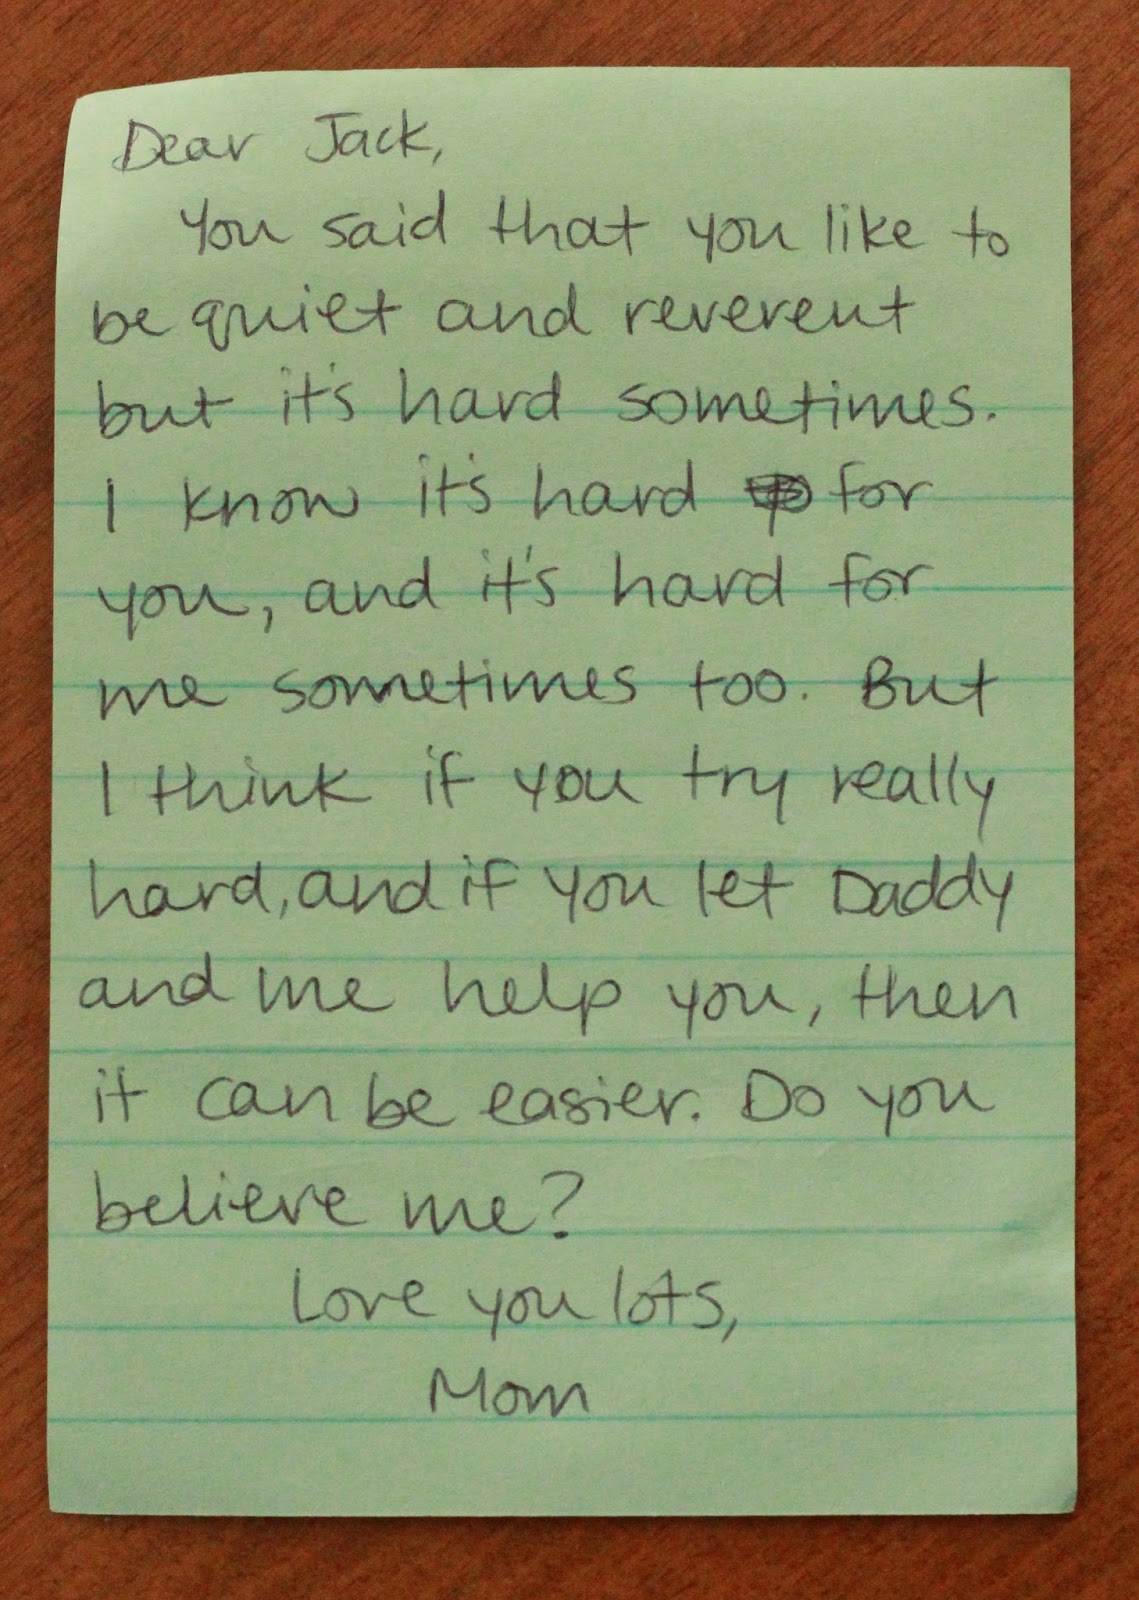 Dear Jack,
You said that you like to
be quiet and reverent
but it's hard sometimes.
I know it's hard for
you, and it's hard for
me sometimes too. But
I think if you try really
hard, and if you let Daddy
and me help you, then
it can be easier. Do you
believe me?
Love you lots,
Mom